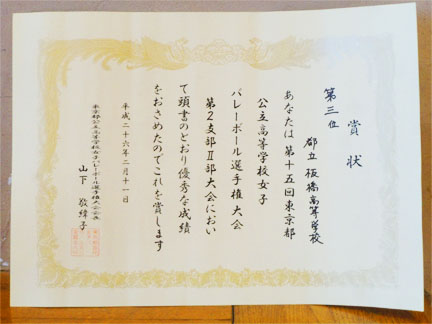 賞状
第三位
都立 板橋高等学校
あなたは第十五回東京都
公立高等学校女子
バレーボール選手権大会
第2支部Ⅱ部大会におい
て頭書のとおり優秀な成績
をおさめたのでこれを賞します
平成二十六年二月十一日
東京都公立高等学校女子バレーボール選手権大会会長
山下 敬緯子